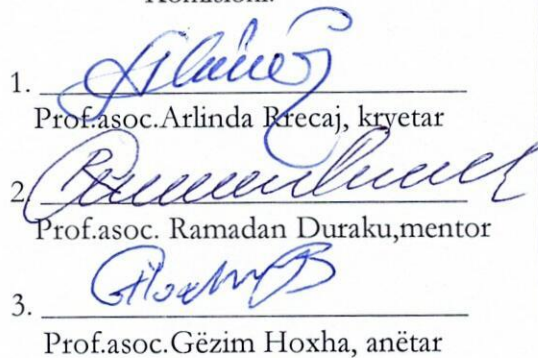 1.
Prof.asoc.Arlinda Rrecaj, kryetar
2.
Prof.asoc. Ramadan Duraku,mentor
3.
Prof.asoc.Gëzim Hoxha, anëtar